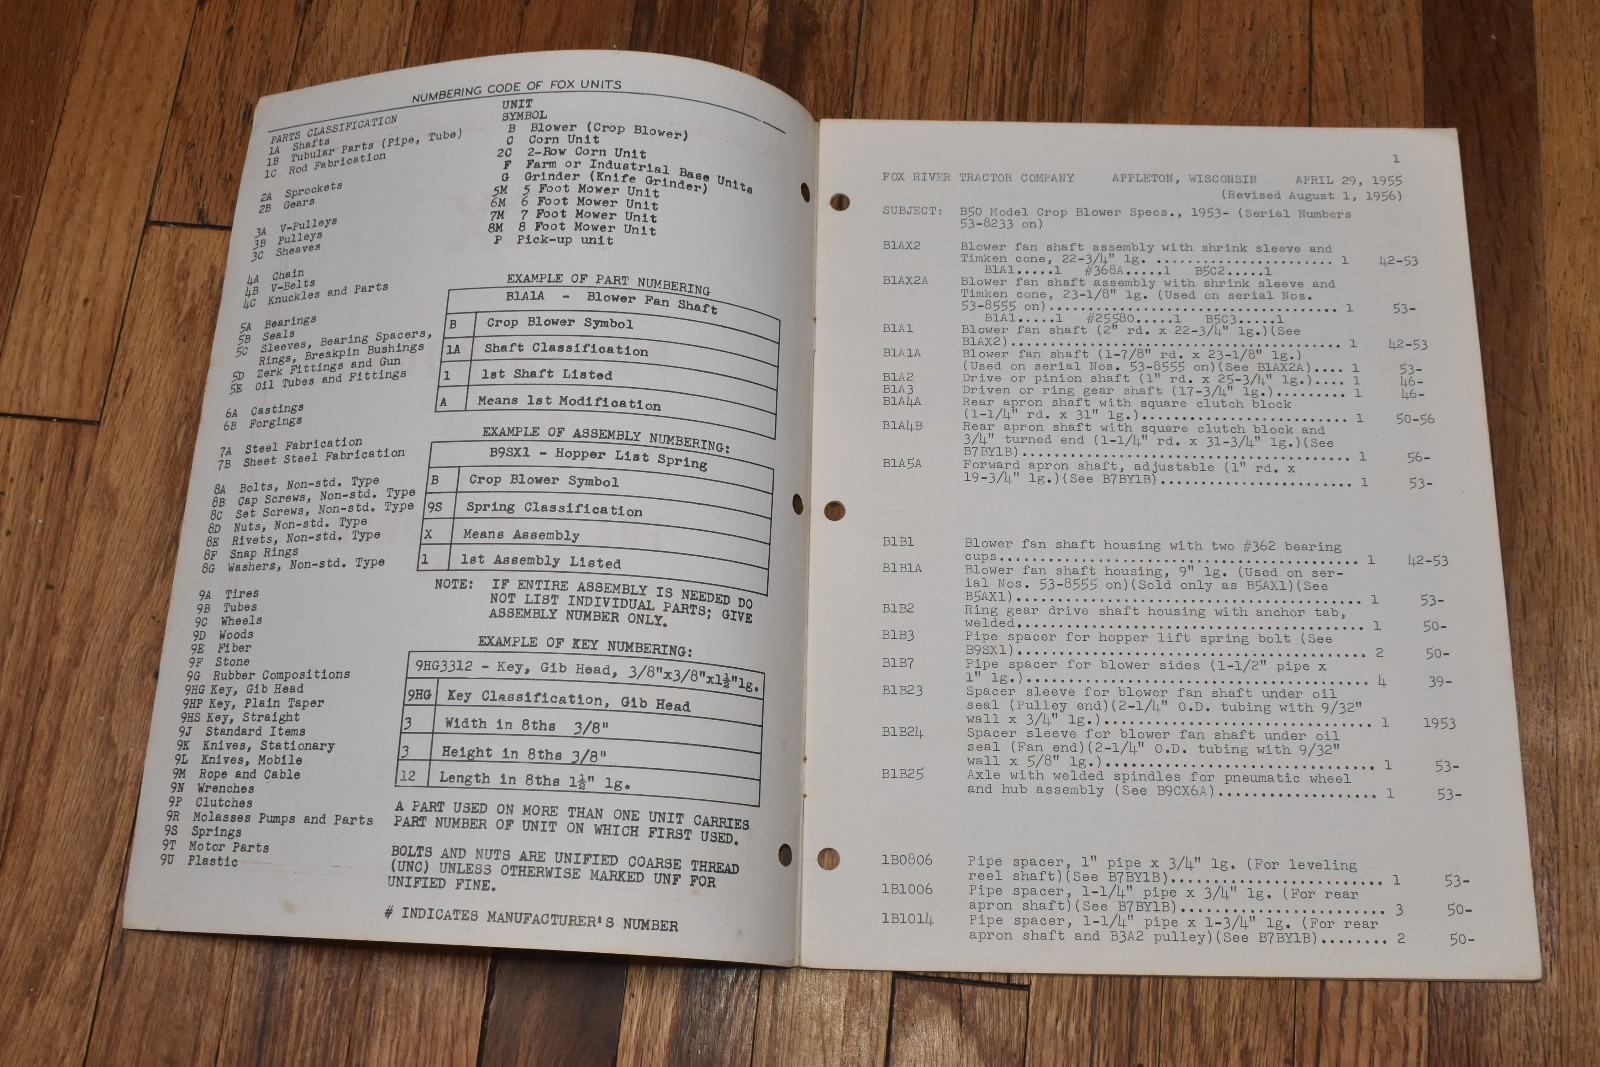 NUMBERING CODE OF FOX UNITS
PARTS CLASSIFICATION
1A Shafts
1B Tubular Parts (Pipe, Tube)
1C Rod Fabrication
2A Sprockets
2B Gears
3A V-Pulleys
3B Pulleys
3C Sheaves
4A Chain
4B V-Belts
4C Knuckles and Parts
5A Bearings
5B Seals
5C Sleeves, Bearing Spacers,
Rings, Breakpin Bushings
5D Zerk Fittings and Gun
5E Oil Tubes and Fittings
6A Castings
6B Forgings
7A Steel Fabrication
7B Sheet Steel Fabrication
8A Bolts, Non-std. Type
8B Cap Screws, Non-std. Type
8C Set Screws, Non-std. Type
8D Nuts, Non-std. Type
8E Rivets, Non-std. Type
8F Snap Rings
8G Washers, Non-std. Type
9A Tires
9B Tubes
9C Wheels
9D Woods
9E Fiber
9F Stone
9G Rubber Compositions
9HG Key, Gib Head
9HP Key, Plain Taper
9HS Key, Straight
9J Standard Items
9K Knives, Stationary
9L Knives, Mobile
9M Rope and Cable
9N Wrenches
9P Clutches
9R Molasses Pumps and Parts
9S Springs
9T Motor Parts
9U Plastic
UNIT
SYMBOL
B Blower (Crop Blower)
C Corn Unit
2C 2-Row Corn Unit
F Farm or Industrial Base Units
G Grinder (Knife Grinder)
5M 5 Foot Mower Unit
6M 6 Foot Mower Unit
7M 7 Foot Mower Unit
8M 8 Foot Mower Unit
P Pick-up unit
EXAMPLE OF PART NUMBERING
B1A1A - Blower Fan Shaft
B Crop Blower Symbol
1A Shaft Classification
1 1st Shaft Listed
A Means 1st Modification
EXAMPLE OF ASSEMBLY NUMBERING:
B9SX1 - Hopper List Spring
B Crop Blower Symbol
9S Spring Classification
X Means Assembly
1 1st Assembly Listed
NOTE: IF ENTIRE ASSEMBLY IS NEEDED DO
NOT LIST INDIVIDUAL PARTS; GIVE
ASSEMBLY NUMBER ONLY.
EXAMPLE OF KEY NUMBERING:
9HG3312 - Key, Gib Head, 3/8"x3/8"x1½"lg.
9HG Key Classification, Gib Head
3 Width in 8ths 3/8"
3 Height in 8ths 3/8"
12 Length in 8ths 1½" lg.
A PART USED ON MORE THAN ONE UNIT CARRIES
PART NUMBER OF UNIT ON WHICH FIRST USED.
BOLTS AND NUTS ARE UNIFIED COARSE THREAD
(UNC) UNLESS OTHERWISE MARKED UNF FOR
UNIFIED FINE.
# INDICATES MANUFACTURER'S NUMBER
1
FOX RIVER TRACTOR COMPANY APPLETON, WISCONSIN APRIL 29, 1955
(Revised August 1, 1956)
SUBJECT: B50 Model Crop Blower Specs., 1953- (Serial Numbers
53-8233 on)
B1AX2 Blower fan shaft assembly with shrink sleeve and
Timken cone, 22-3/4" lg. ....................... 1 42-53
B1A1.....1 #368A.....1 B5C2.....1
B1AX2A Blower fan shaft assembly with shrink sleeve and
Timken cone, 23-1/8" lg. (Used on serial Nos.
53-8555 on)..................................... 1 53-
B1A1.....1 #25580.....1 B5C3.....1
B1A1 Blower fan shaft (2" rd. x 22-3/4" lg.)(See
B1AX2).......................................... 1 42-53
B1A1A Blower fan shaft (1-7/8" rd. x 23-1/8" lg.)
(Used on serial Nos. 53-8555 on)(See B1AX2A).... 1 53-
B1A2 Drive or pinion shaft (1" rd. x 25-3/4" lg.).... 1 46-
B1A3 Driven or ring gear shaft (17-3/4" lg.)......... 1 46-
B1A4A Rear apron shaft with square clutch block
(1-1/4" rd. x 31" lg.).......................... 1 50-56
B1A4B Rear apron shaft with square clutch block and
3/4" turned end (1-1/4" rd. x 31-3/4" lg.)(See
B7BY1B)......................................... 1 56-
B1A5A Forward apron shaft, adjustable (1" rd. x
19-3/4" lg.)(See B7BY1B)........................ 1 53-
B1B1 Blower fan shaft housing with two #362 bearing
cups............................................ 1 42-53
B1B1A Blower fan shaft housing, 9" lg. (Used on ser-
ial Nos. 53-8555 on)(Sold only as B5AX1)(See
B5AX1).......................................... 1 53-
B1B2 Ring gear drive shaft housing with anchor tab,
welded.......................................... 1 50-
B1B3 Pipe spacer for hopper lift spring bolt (See
B9SX1).......................................... 2 50-
B1B7 Pipe spacer for blower sides (1-1/2" pipe x
1" lg.)......................................... 4 39-
B1B23 Spacer sleeve for blower fan shaft under oil
seal (Pulley end)(2-1/4" O.D. tubing with 9/32"
wall x 3/4" lg.)................................ 1 1953
B1B24 Spacer sleeve for blower fan shaft under oil
seal (Fan end)(2-1/4" O.D. tubing with 9/32"
wall x 5/8" lg.)................................ 1 53-
B1B25 Axle with welded spindles for pneumatic wheel
and hub assembly (See B9CX6A)................... 1 53-
1B0806 Pipe spacer, 1" pipe x 3/4" lg. (For leveling
reel shaft)(See B7BY1B)......................... 1 53-
1B1006 Pipe spacer, 1-1/4" pipe x 3/4" lg. (For rear
apron shaft)(See B7BY1B)........................ 3 50-
1B1014 Pipe spacer, 1-1/4" pipe x 1-3/4" lg. (For rear
apron shaft and B3A2 pulley)(See B7BY1B)........ 2 50-